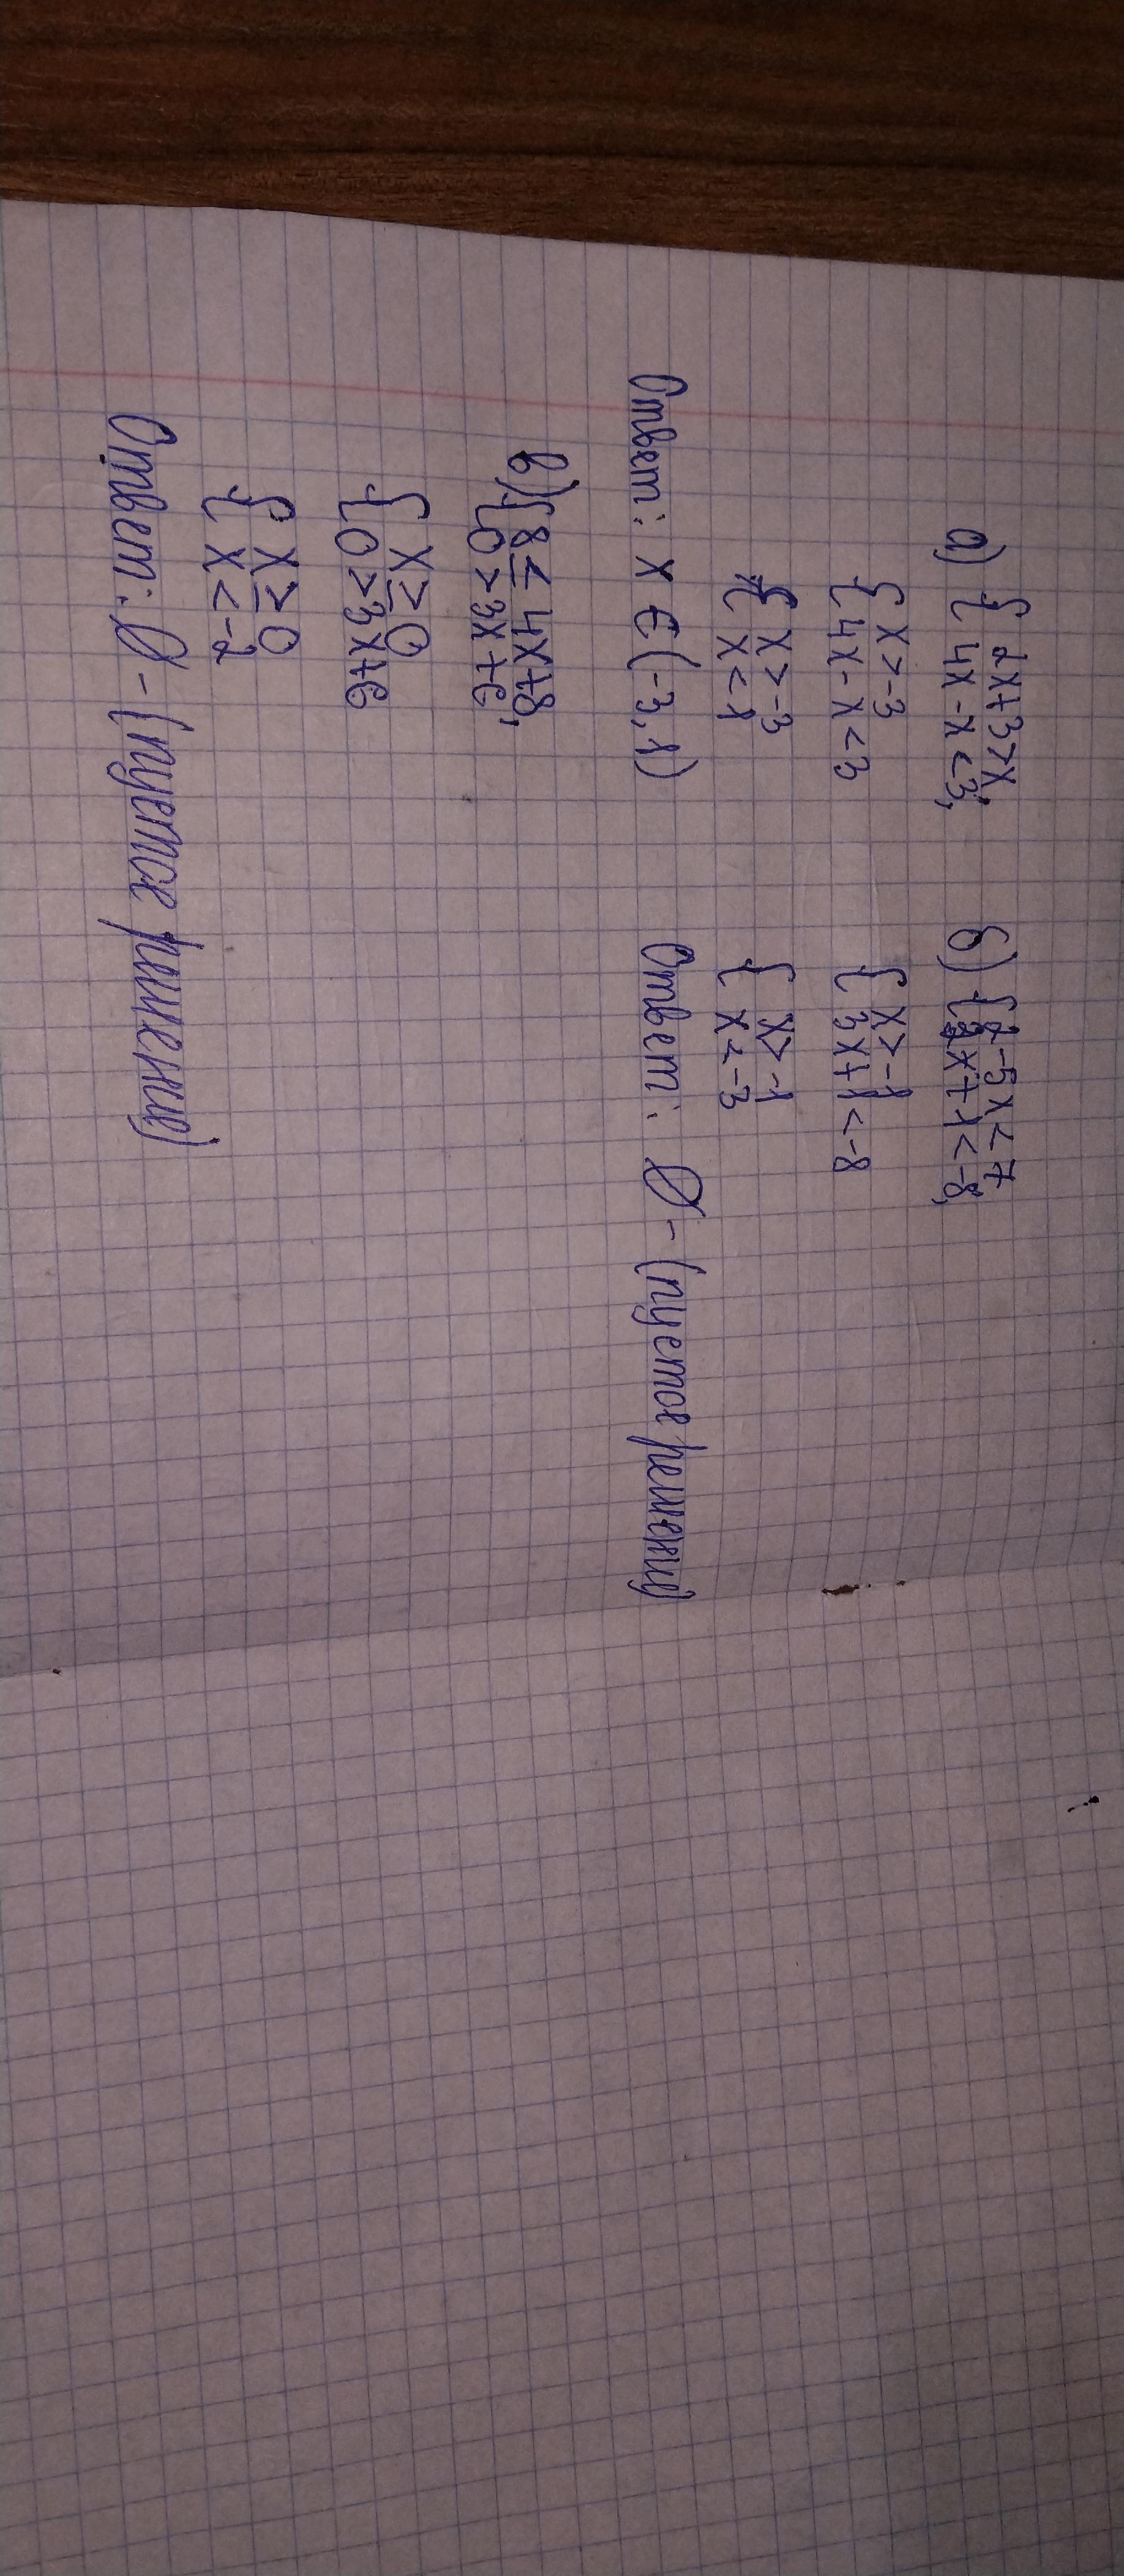 а) { 2x+3>x,
4x-x<3,
{ x>-3
4x-x<3
{ x>-3
x<1
Ответ: x ∈ (-3,1)
б) { 2-5x<7
3x+1<-8,
{ x>-1
3x+1<-8
{ x>-1
x<-3
Ответ: ∅ - (пустое решение)
в) { 8≤4x+8,
0>3x+6,
{ x≥0
0>3x+6
{ x≥0
x<-2
Ответ: ∅ - (пустое решение)